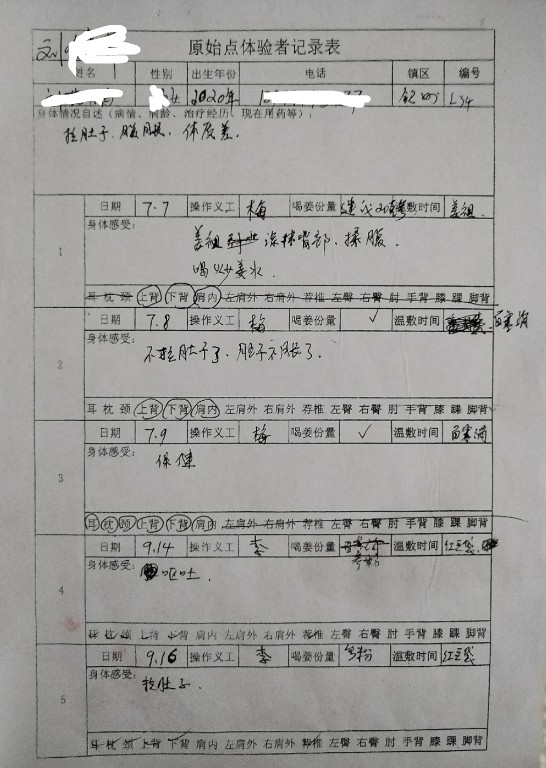 刘
原始点体验者记录表
姓名 性别 出生年份 电话 镇区 编号
女 2020年 L34
身体情况自述（病情、病龄、治疗经历、现在用药等）：
拉肚子、腹胀、体质差.
日期 7.7 操作义工 梅 喝姜份量 温敷时间 姜祖.
身体感受：
姜祖 涂抹背部、揉腹.
喝炒姜水
1
耳 枕 颈 上背 下背 肩内 左肩外 右肩外 荐椎 左臀 右臀 肘 手背 膝 踝 脚背
日期 7.8 操作义工 梅 喝姜份量 ✓ 温敷时间
身体感受：
不拉肚子了、肚子不胀了.
2
耳 枕 颈 上背 下背 肩内 左肩外 右肩外 荐椎 左臀 右臀 肘 手背 膝 踝 脚背
日期 7.9 操作义工 梅 喝姜份量 ✓ 温敷时间
身体感受：
保健
3
耳 枕 颈 上背 下背 肩内 左肩外 右肩外 荐椎 左臀 右臀 肘 手背 膝 踝 脚背
日期 9.14 操作义工 李 喝姜份量 温敷时间 红豆袋
身体感受：
呕吐.
4
耳 枕 颈 上背 下背 肩内 左肩外 右肩外 荐椎 左臀 右臀 肘 手背 膝 踝 脚背
日期 9.16 操作义工 李 喝姜份量 温敷时间 红豆袋
身体感受：
拉肚子.
5
耳 枕 颈 上背 下背 肩内 左肩外 右肩外 荐椎 左臀 右臀 肘 手背 膝 踝 脚背